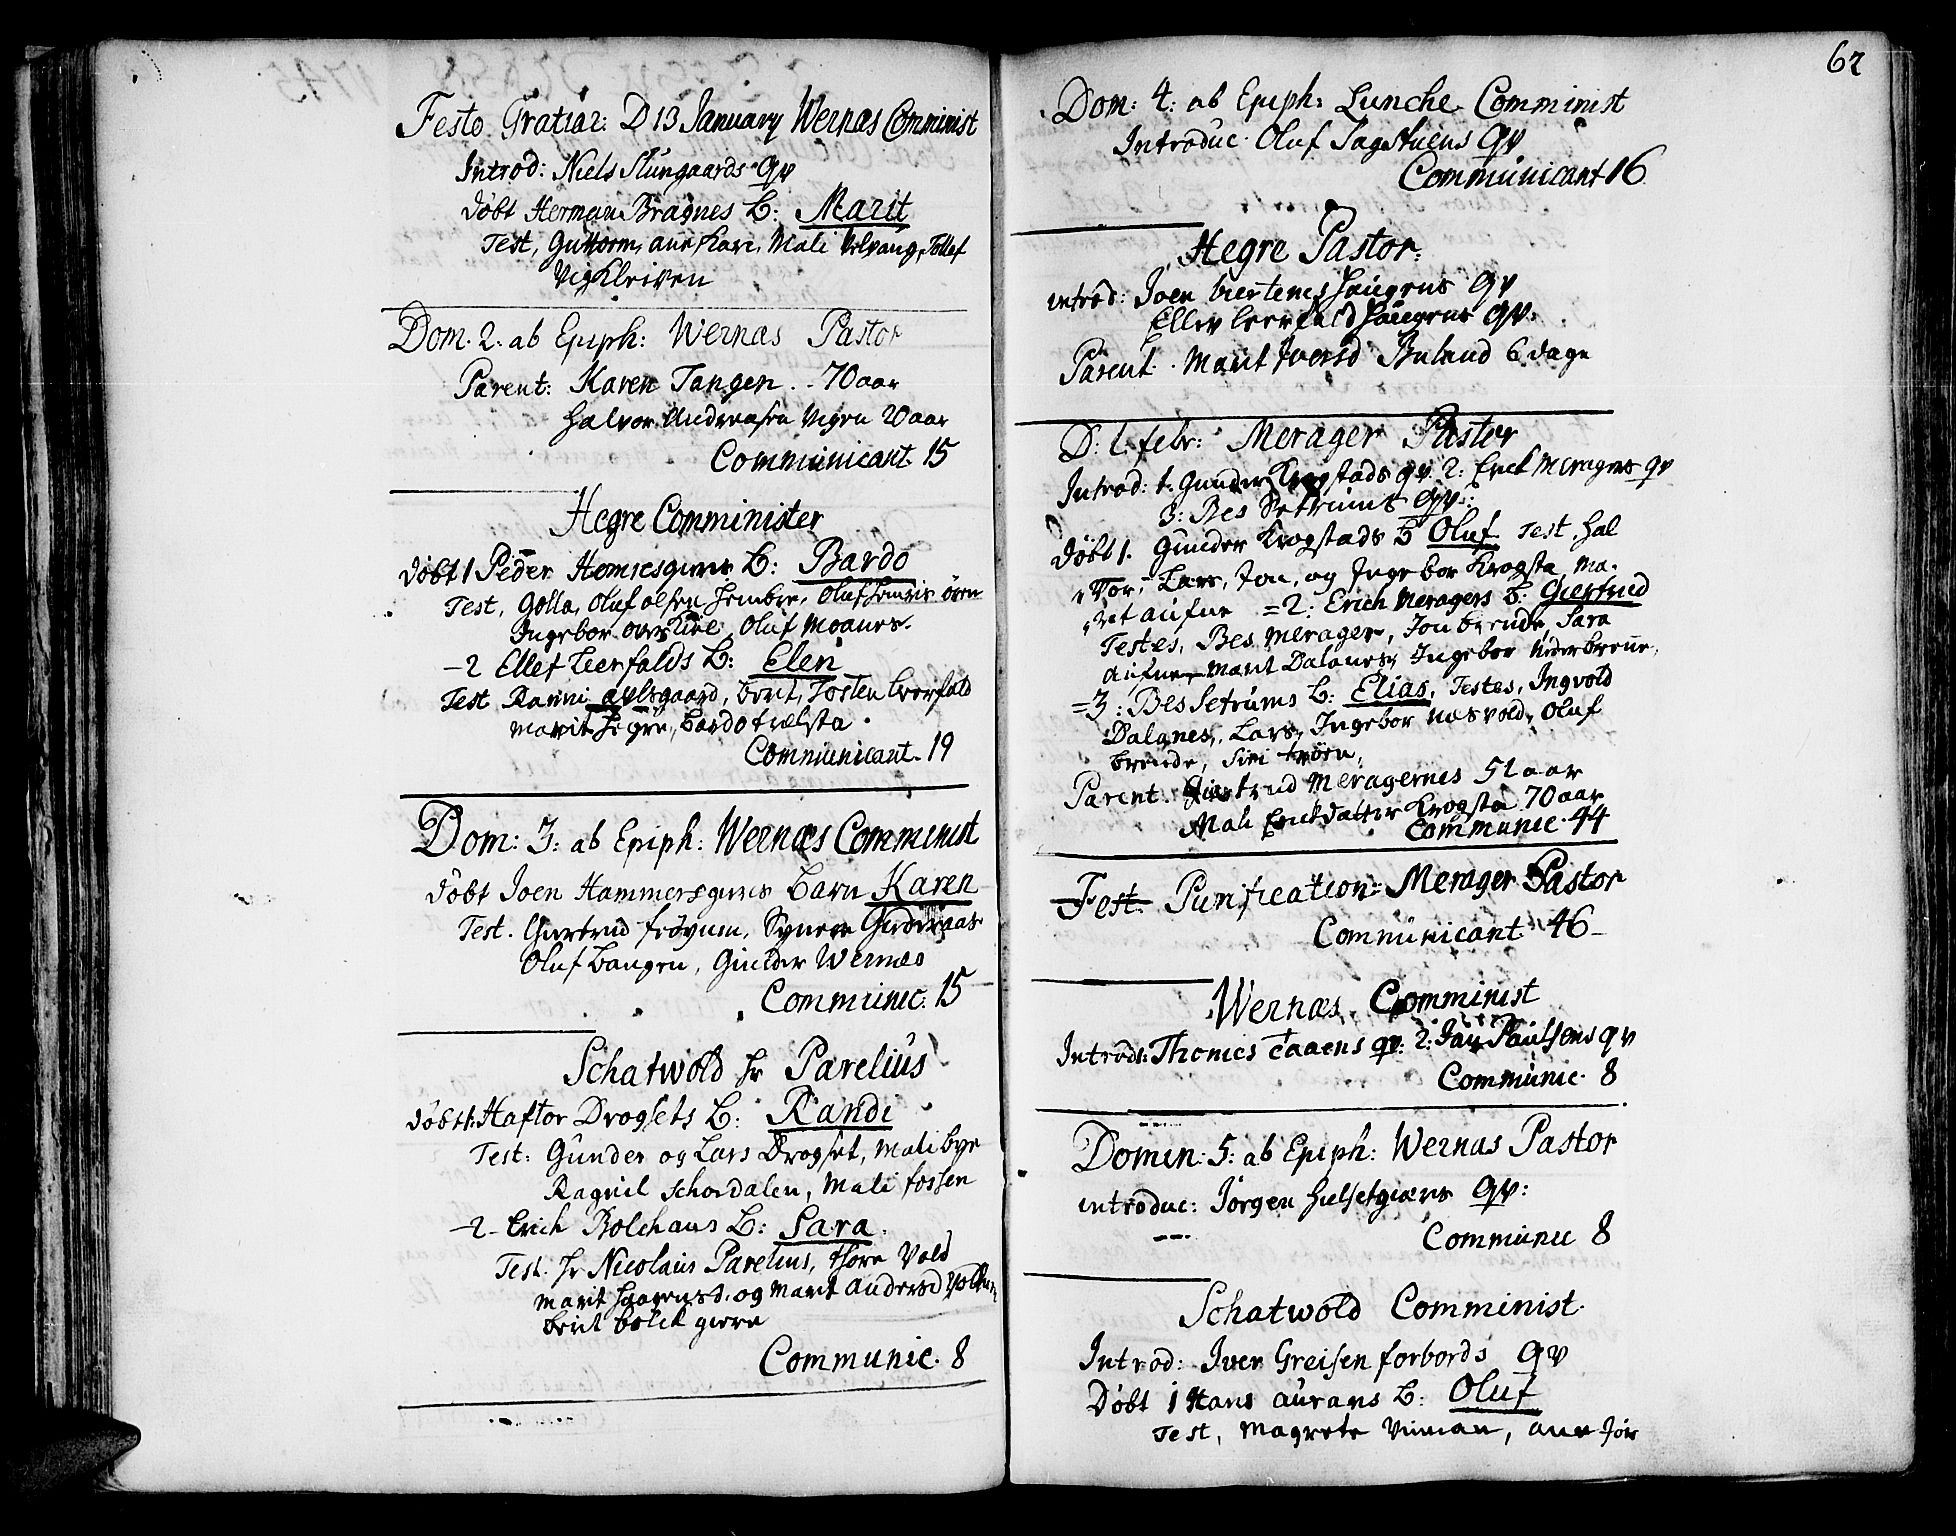 Festo Gratiar: D 13 January Wernæs Comminist
Introd: Niels Slungaards qv
Døbt Herman Bragnes B: Marit
Test, Guttorm, ane, Kari, Mali Velvang, Tollef
Vigkleiven
Dom. 2. ab Epiph: Wernæs Pastor
Parent: Karen Tangen. 70 aar
Halvor Andreasen Vigen 20 aar
Communicant. 15
Hegre Comminister
Døbt 1 Peder B: Bardo
Test, Golla, Oluf olsen Hembre, Oluf øren
Ingebor Oluf Moanes.
-2 Ellef Leerfalds B: Elen
Test Ranni avlsgaard, berit, Tosten Leerfald
Marit Hegre, Bardo
Communicant. 19
Dom: 3. ab Epiph: Wernæs Comminist
Døbt Joen Hammersgiæres Barn Karen
Test. Giertrud frøynum, Synere
Oluf Bangen, Gunder Wernæs
Communic: 15
Schatwold Hr Parelius
Døbt 1: Haftor Drogsets B: Randi
Test: Gunder og Lars Drogset, Mali bye
Ragnil Schordalen, Mali fossen
-2- Erich Bolchans B: Sara
Test: Hr Nicolaus Parelius, thore Vold
Marit og Marit Andersd
berit bolch giere
Communic. 8
62
Dom: 4: ab Epiph: Lunche Comminist
Introduc. Oluf Sagstuens qv
Communicant 16
Hegre Pastor:
introd: Joen biertems Haugens qv
Ellev Leerfald Haugens qv:
Parent. Marit Iversd Buland 6 dage
D: 1. febr: Merager Pastor
Introd: 1. Gunder Krogstads qv 2: Erich Meragers qv
3: Bes Setrums qv:
Døbt 1. Gunder Krogstads B Oluf Test. Hal
vor, Lars, Jon, og Ingebor Krogsta, Ma-
ret aufne =2: Erich Meragers B: Giertrud
Testes, Bes Merager, Jon brende, Sara
Aufne, Marit Dalanes, Ingebor
=3: Bes Setrums B: Elias, Testes, Ingvold
Dalanes, Lars, Ingebor Næsvold, Oluf
brende, Siri
Parent. Giertrud Meragernes 51 aar
Mali Erichdatter Krogsta 70 aar
Communic. 44
Fest: Purification: Merager Pastor
Communicant. 46-
Wernæs. Comminist
Introd: 1: Thomes qv: 2: Paulsens qv
Communic. 8
Domin: 5: ab Epiph: Wernæs Pastor
introduc: Jørgen Hulsetgiæres qv:
Communic 8
Schatwold Comminist.
Introd: Iver Greisen forbords qv
Døbt 1 Hans aurans B: Oluf
Test, Magrete Vinnan, ane Jør